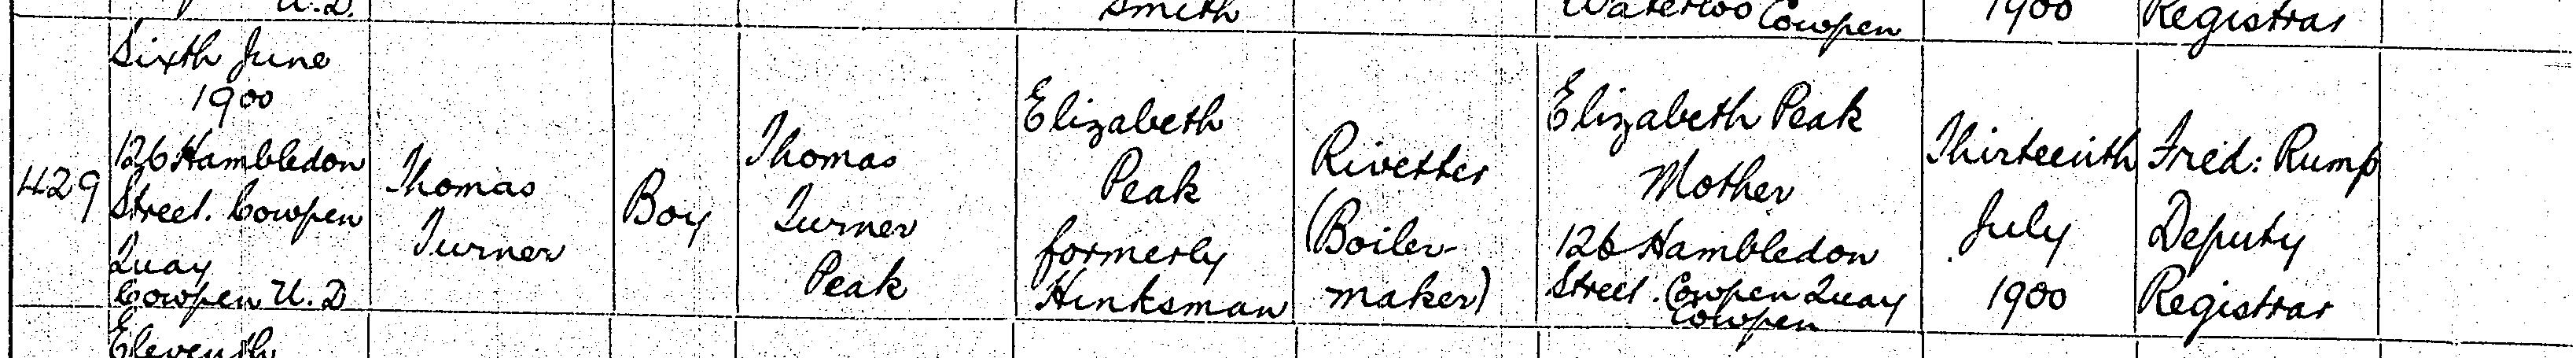 U.D.
Smith
Waterloo Cowpen
1900
Registrar
429
Sixth June
1900
126 Hambledon
Street. Cowpen
Quay
Cowpen U. D
Thomas
Turner
Boy
Thomas
Turner
Peak
Elizabeth
Peak
formerly
Hinksman
Rivetter
(Boiler-
maker)
Elizabeth Peak
Mother
126 Hambledon
Street. Cowpen Quay
Cowpen
Thirteenth
July
1900
Fred: Rump
Deputy
Registrar
Eleventh